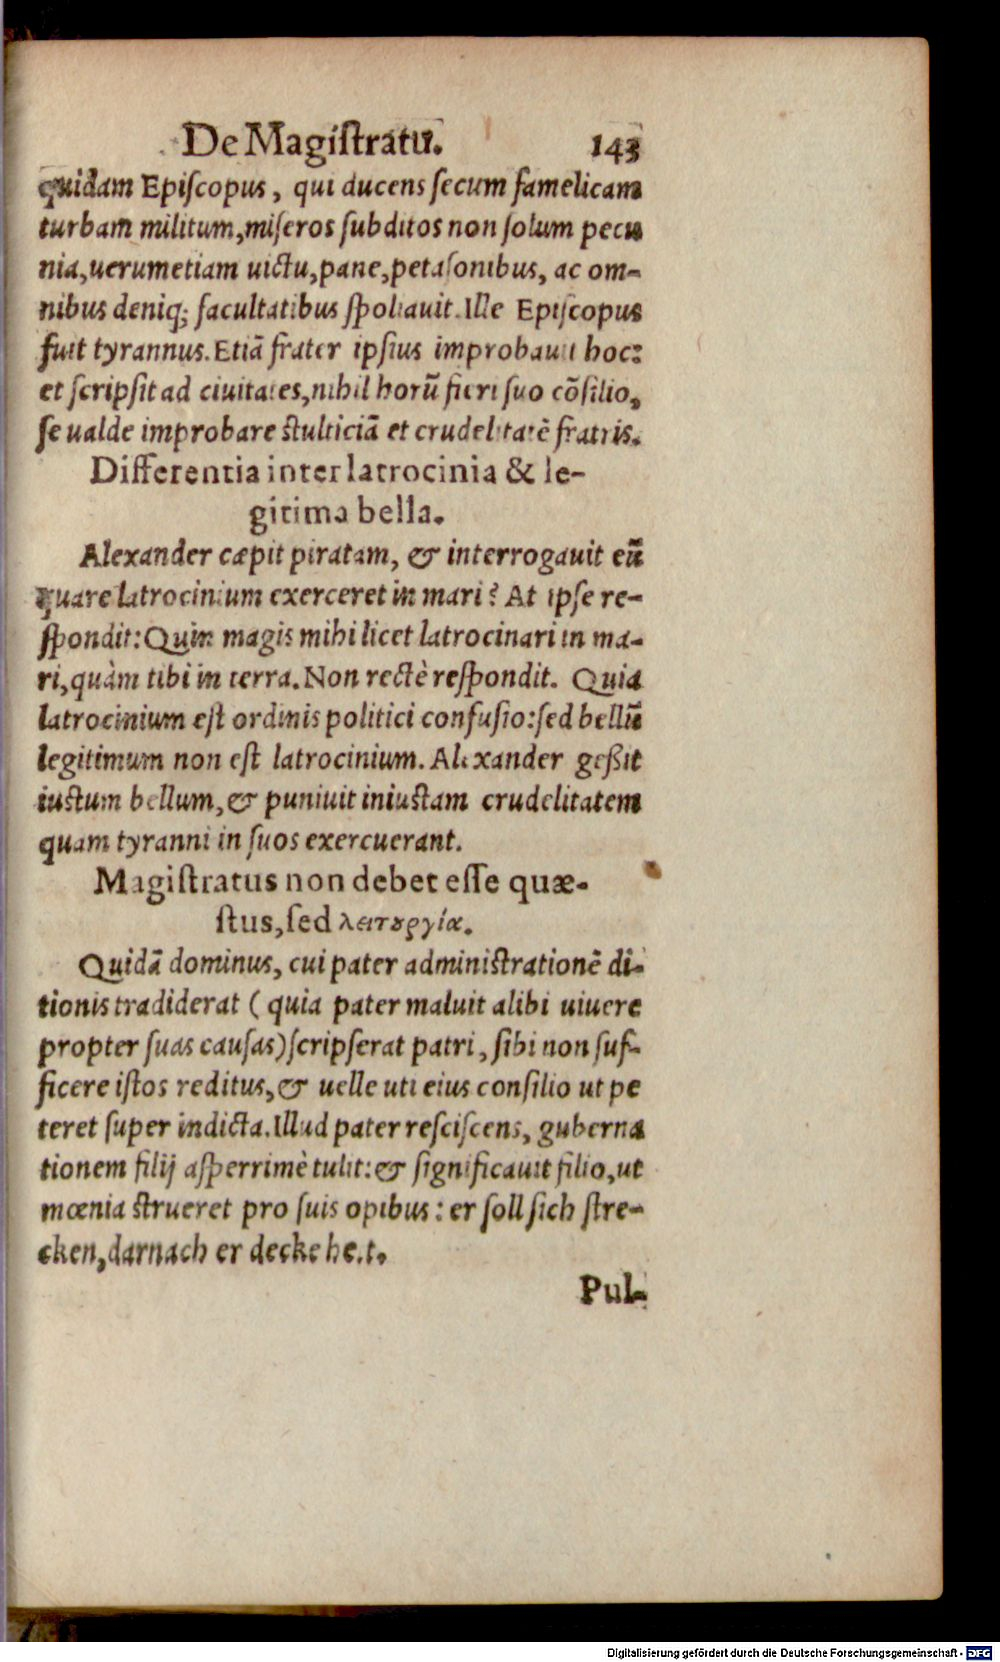 De Magiſtratu. 143
quidam Epiſcopus, qui ducens ſecum famelicam
turbam militum,miſeros ſubditos non ſolum pecu
nia,uerumetiam uictu,pane,petaſonibus, ac om-
nibus deniq; facultatibus ſpoliauit. Ille Epiſcopus
fuit tyrannus. Etiã frater ipſius improbauit hoc:
et ſcripſit ad ciuitates,nihil horũ fieri ſuo cõſilio,
ſe ualde improbare ſtulticiã et crudelitatẽ fratris.
Differentia inter latrocinia & le-
gitima bella.
Alexander cœpit piratam, & interrogauit eũ
quare latrocinium exerceret in mari? At ipſe re-
ſpondit: Quin magis mihi licet latrocinari in ma-
ri,quàm tibi in terra. Non rectè reſpondit. Quia
latrocinium eſt ordinis politici confuſio: ſed bellũ
legitimum non eſt latrocinium. Alexander geßit
iuſtum bellum,& puniuit iniuſtam crudelitatem
quam tyranni in ſuos exercuerant.
Magiſtratus non debet eſſe quæ-
ſtus,ſed λειτȣργία.
Quidã dominus, cui pater adminiſtrationẽ di-
tionis tradiderat ( quia pater maluit alibi uiuere
propter ſuas cauſas) ſcripſerat patri, ſibi non ſuf-
ficere iſtos reditus,& uelle uti eius conſilio ut pe
teret ſuper indicta. Illud pater reſciſcens, guberna
tionem filij aſperrimè tulit: & ſignificauit filio,ut
mœnia ſtrueret pro ſuis opibus: er ſoll ſich ſtre-
cken,darnach er decke het.
Pul-
Digitalisierung gefördert durch die Deutsche Forschungsgemeinschaft - DFG